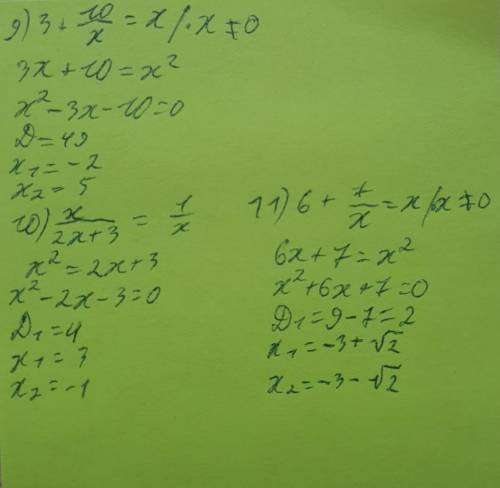 9) 3 + 10/x = x /·x ≠ 0
3x + 10 = x²
x² - 3x - 10 = 0
D = 49
x₁ = -2
x₂ = 5
10) x/(2x+3) = 1/x
x² = 2x + 3
x² - 2x - 3 = 0
D₁ = 4
x₁ = 3
x₂ = -1
11) 6 + 7/x = x /·x ≠ 0
6x + 7 = x²
x² + 6x + 7 = 0
D₁ = 9 - 7 = 2
x₁ = -3 + √2
x₂ = -3 - √2